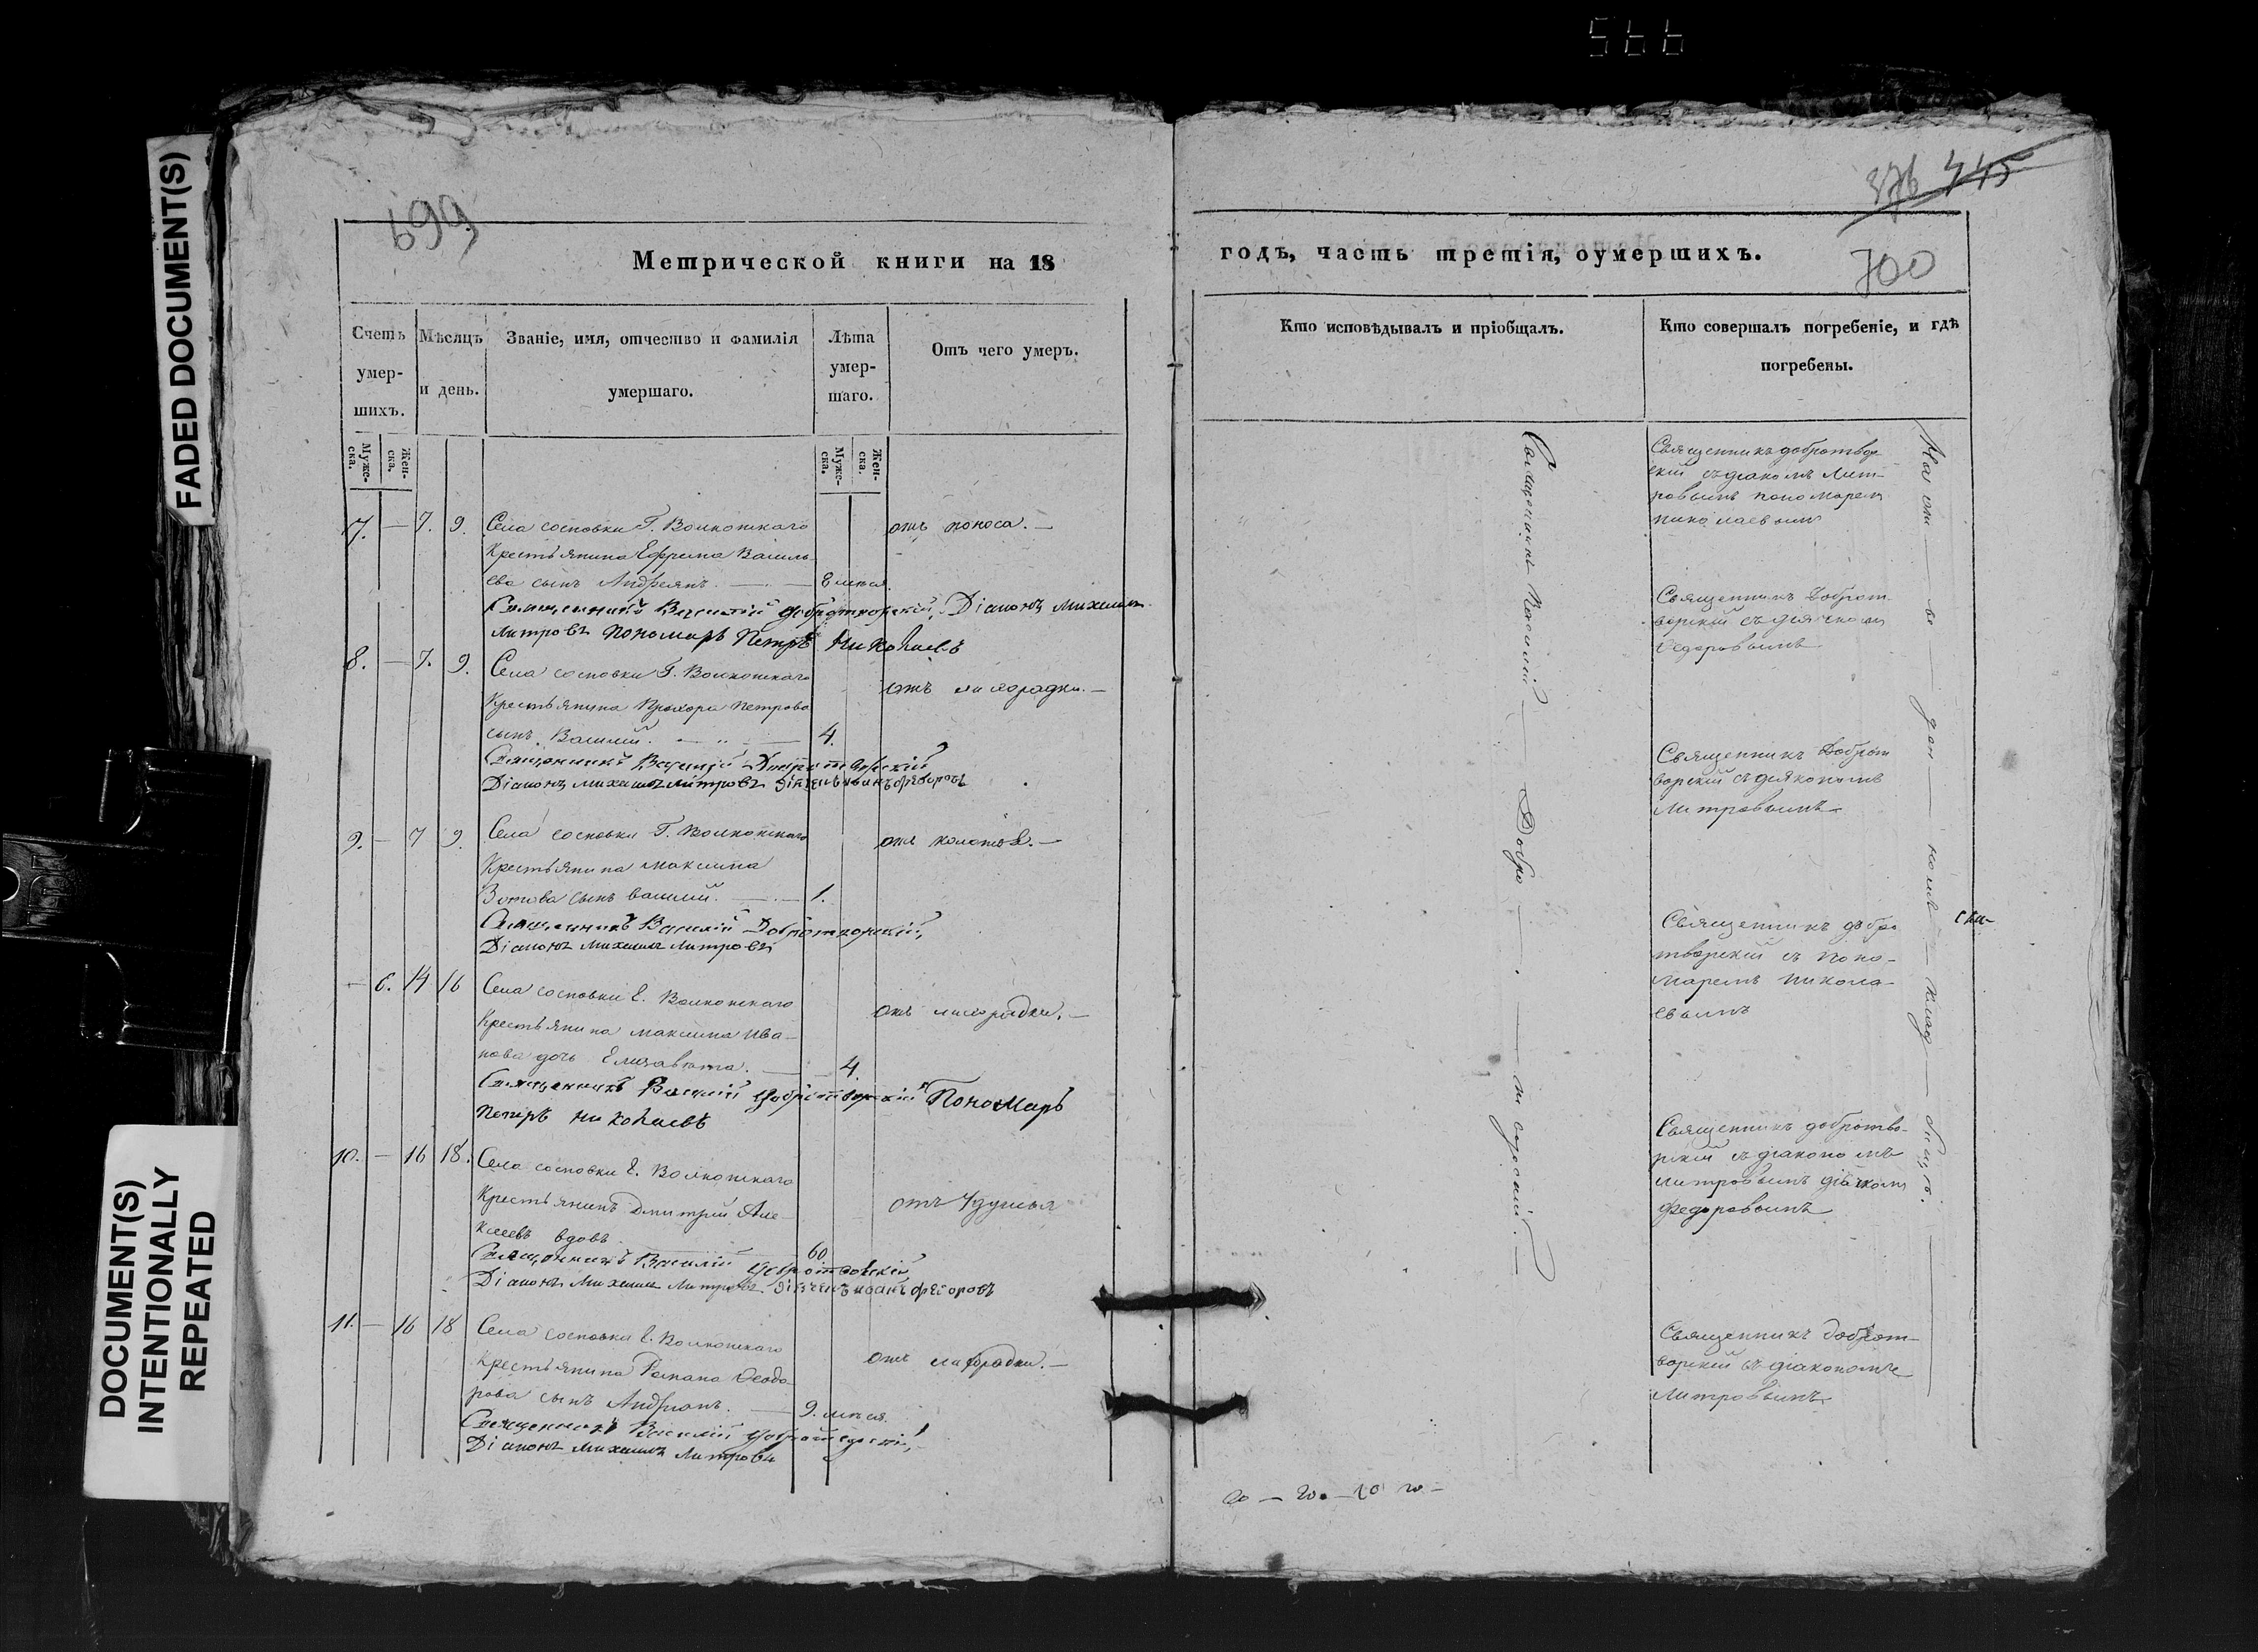 566
FADED DOCUMENT(S)
DOCUMENT(S)
INTENTIONALLY
REPEATED
699
Метрической книги на 18
Счетъ умер-шихъ.
Муже-ска.
Жен-ска.
Мѣсяцъ и день.
Званіе, имя, отчество и фамилія умершаго.
Лѣта умер-шаго.
Муже-ска.
Жен-ска.
Отъ чего умеръ.
7. — 7. 9. Села сосновки Г. Волконскаго
отъ поноса. —
Крестьянина Ефрима Василь
ева сынъ Андреянъ. — 8 мѣся.
Священникъ Василій Добротворскій, Діаконъ Михаилъ
Митровъ Пономарь Петръ Николаевъ
8. — 7. 9. Села сосновки Г. Волконскаго
отъ лихорадки. —
Крестьянина Прохора Петрова
сынъ Василій. — 4.
Священникъ Василій Добротворскій
Діаконъ Михаилъ Митровъ Діячекъ Иванъ Федоровъ
9. — 7 9. Села сосновки Г. Волконскаго
отъ колотья. —
Крестьянина Максима
Зотова сынъ василій. — 1.
Священникъ Василій Добротворскій,
Діаконъ Михаилъ Митровъ
— 6. 14 16 Села сосновки Е. Волконскаго
отъ лихорадки. —
Крестьянина Максима Ива-
нова дочь Елизавѣта. — 4.
Священникъ Василій Добротворскій Пономарь
Петръ Николаевъ
10. — 16 18. Села сосновки Е. Волконскаго
отъ Удушья
Крестьянинъ Дмитрій Але-
ксеевъ вдовъ. 60
Священникъ Василій Добротворскій
Діаконъ Михаилъ Митровъ. Діячекъ Иванъ Федоровъ
11. — 16 18 Села сосновки Е. Волконскаго
отъ лихорадки. —
Крестьянина Романа Феодо-
рова сынъ Андріанъ. — 9. мѣся.
Священникъ Василій Добротворскій,
Діаконъ Михаилъ Митровъ
376 445
700
годъ, часть третія, оумершихъ.
Кто исповѣдывалъ и пріобщалъ.
Кто совершалъ погребеніе, и гдѣ
погребены.
Священникъ Василій — Добро — творскій. —
Священникъ добротвор
скій съ діакомъ Мит-
ровымъ пономарем
николаевым
Священникъ Доброт-
ворскій съ дьячком
Федоровымъ
Священникъ Доброт
ворскій съ дьякономъ
Митровымъ
Священникъ добро
творскій съ поно-
маремъ никола-
евымъ
Священникъ добротво-
рскій съ діакономъ
Митровымъ діячком
Федоровымъ
Священникъ доброт-
ворскій съ діакономъ
Митровымъ